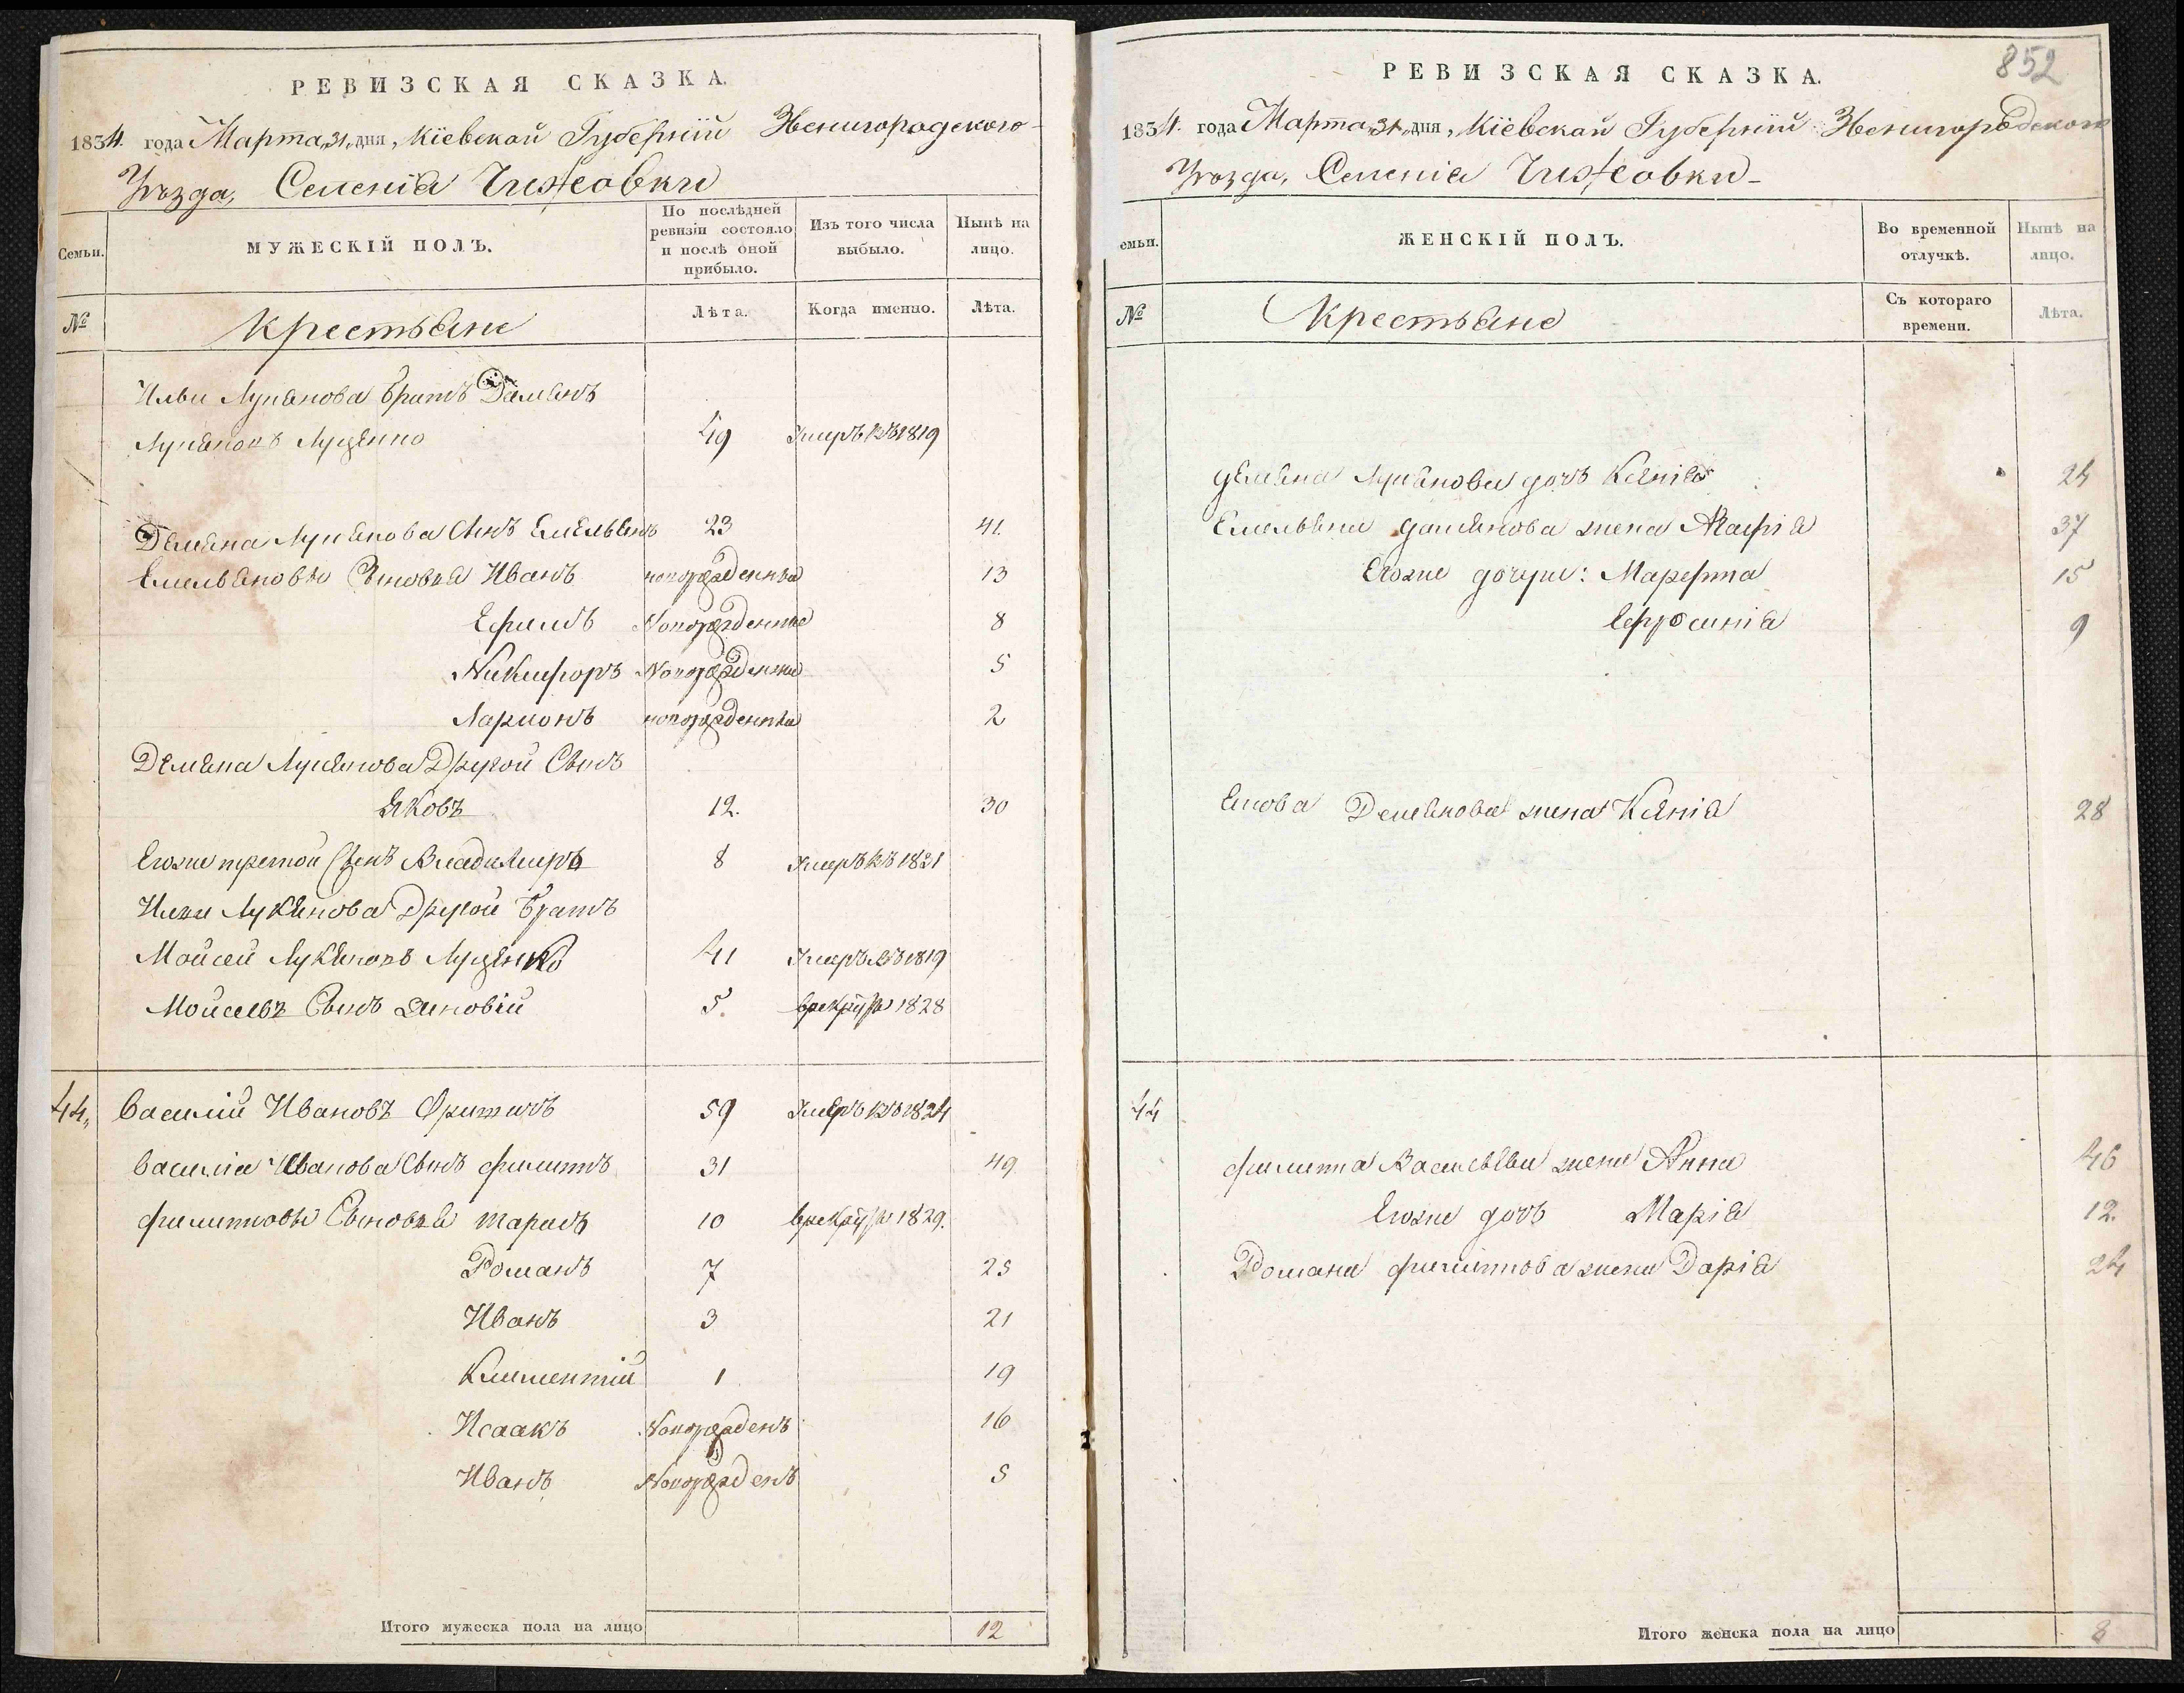 РЕВИЗСКАЯ СКАЗКА.
1834. года Марта „31„ дня, Кіевской Губерніи Звенигородского
Уѣзда, Селенія Чижовки
Семьи.
МУЖЕСКІЙ ПОЛЪ.
По послѣдней ревизіи состояло и послѣ оной прибыло.
Изъ того числа выбыло.
Нынѣ на лицо.
№
Крестьяне
Лѣта.
Когда именно.
Лѣта.
Ильи Лукянова братъ Демянъ
Лукяновъ Луценко 49 Умеръ въ 1819
Демяна Лукянова Сынъ Емельянъ 23 41.
Емельяновы Сыновья Иванъ новорожденные 13
Ефимъ Новорожденные 8
Никифоръ Новорожденные 5
Ларионъ новорожденные 2
Демяна Лукянова Другой Сынъ
Яковъ 12. 30
Егоже третой Сынъ Владимиръ 8 Умеръ въ 1821
Ильи Лукянова Другой братъ
Мойсей Лукяновъ Луценко 41 Умеръ въ 1819
Мойсеевъ Сынъ Зиновій 5. врекруты 1828
44„ Василій Ивановъ 59 Умеръ въ 1824
Василія Иванова Сынъ филиппъ 31 49
филипповы Сыновья тарасъ 10 врекруты 1829.
Романъ 7 25
Иванъ 3 21
Климентій 1 19
Исаакъ Новорожденъ 16
Иванъ Новорожденъ 5
Итого мужеска пола на лицо 12
852
РЕВИЗСКАЯ СКАЗКА.
1834. года Марта „31„ дня, Кіевской Губерніи Звенигородского
Уѣзда, Селенія Чижовки
семьи.
ЖЕНСКІЙ ПОЛЪ.
Во временной отлучкѣ.
Нынѣ на лицо.
№
Крестьяне
Съ котораго времени.
Лѣта.
демяна Лукянова дочь Ксенія 24
Емельяна демянова жена Марія 37
Егоже дочери: Марфа 15
Ефросинія 9
Якова Демянова жена Ксенія 28
44
филиппа Васильева жена Анна 46
Егоже дочь Марія 12.
Романа филиппова жена Дарія 24
Итого женска пола на лицо 8